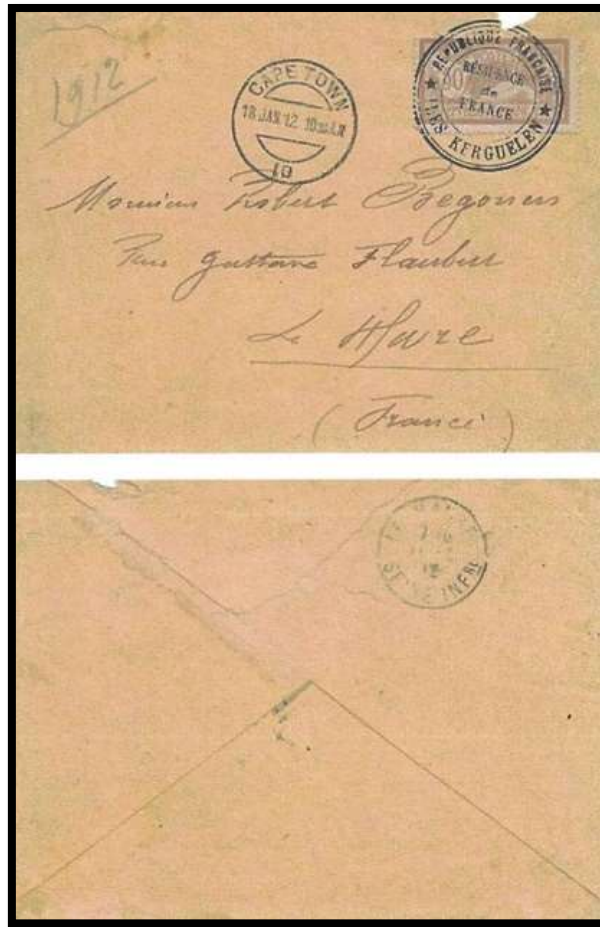 1912
CAPE TOWN
18 JAN 12
10
REPUBLIQUE FRANCAISE
RÉSIDENCE
de
FRANCE
ILES KERGUELEN
Monsieur Robert
Rue Gustave Flaubert
Le Havre
(France)
12
SEINE INFRE